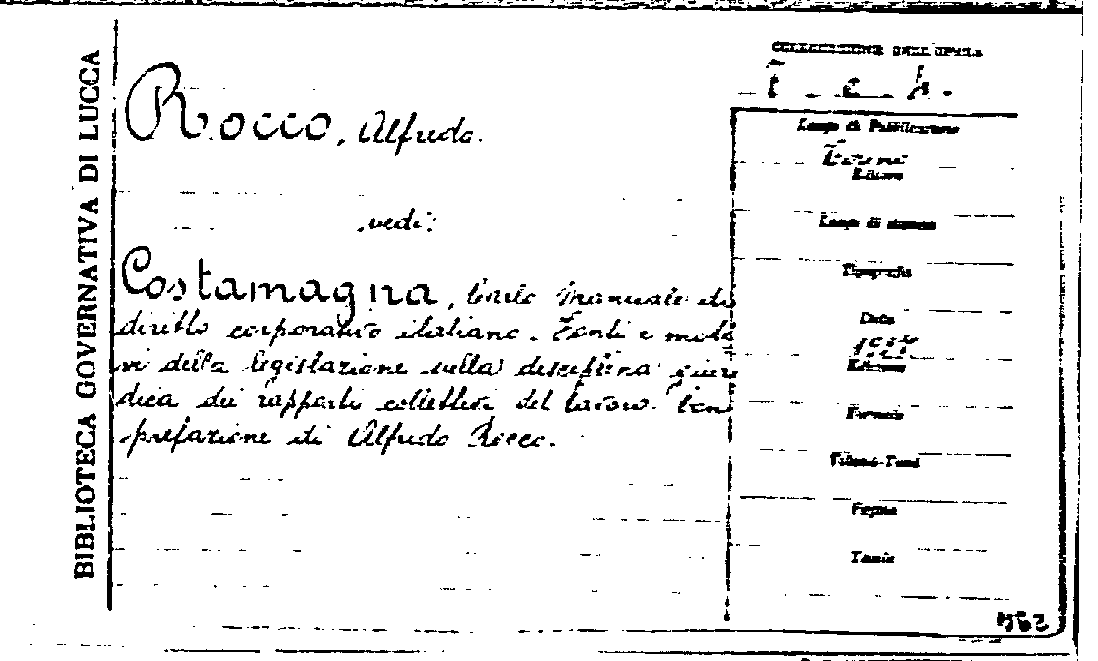 BIBLIOTECA GOVERNATIVA DI LUCCA
Rocco, Alfredo.
vedi:
Costamagna, Carlo Manuale di
diritto corporativo italiano. Fonti e moti
vi della legislazione sulla disciplina giuri
dica dei rapporti collettivi del lavoro. Con
prefazione di Alfredo Rocco.
COLLOCAZIONE DELL'OPERA
Luogo di Pubblicazione
Torino
Editore
Luogo di stampa
Tipografia
Data
Edizione
Formato
Volumi-Tomi
Pagine
Tavole